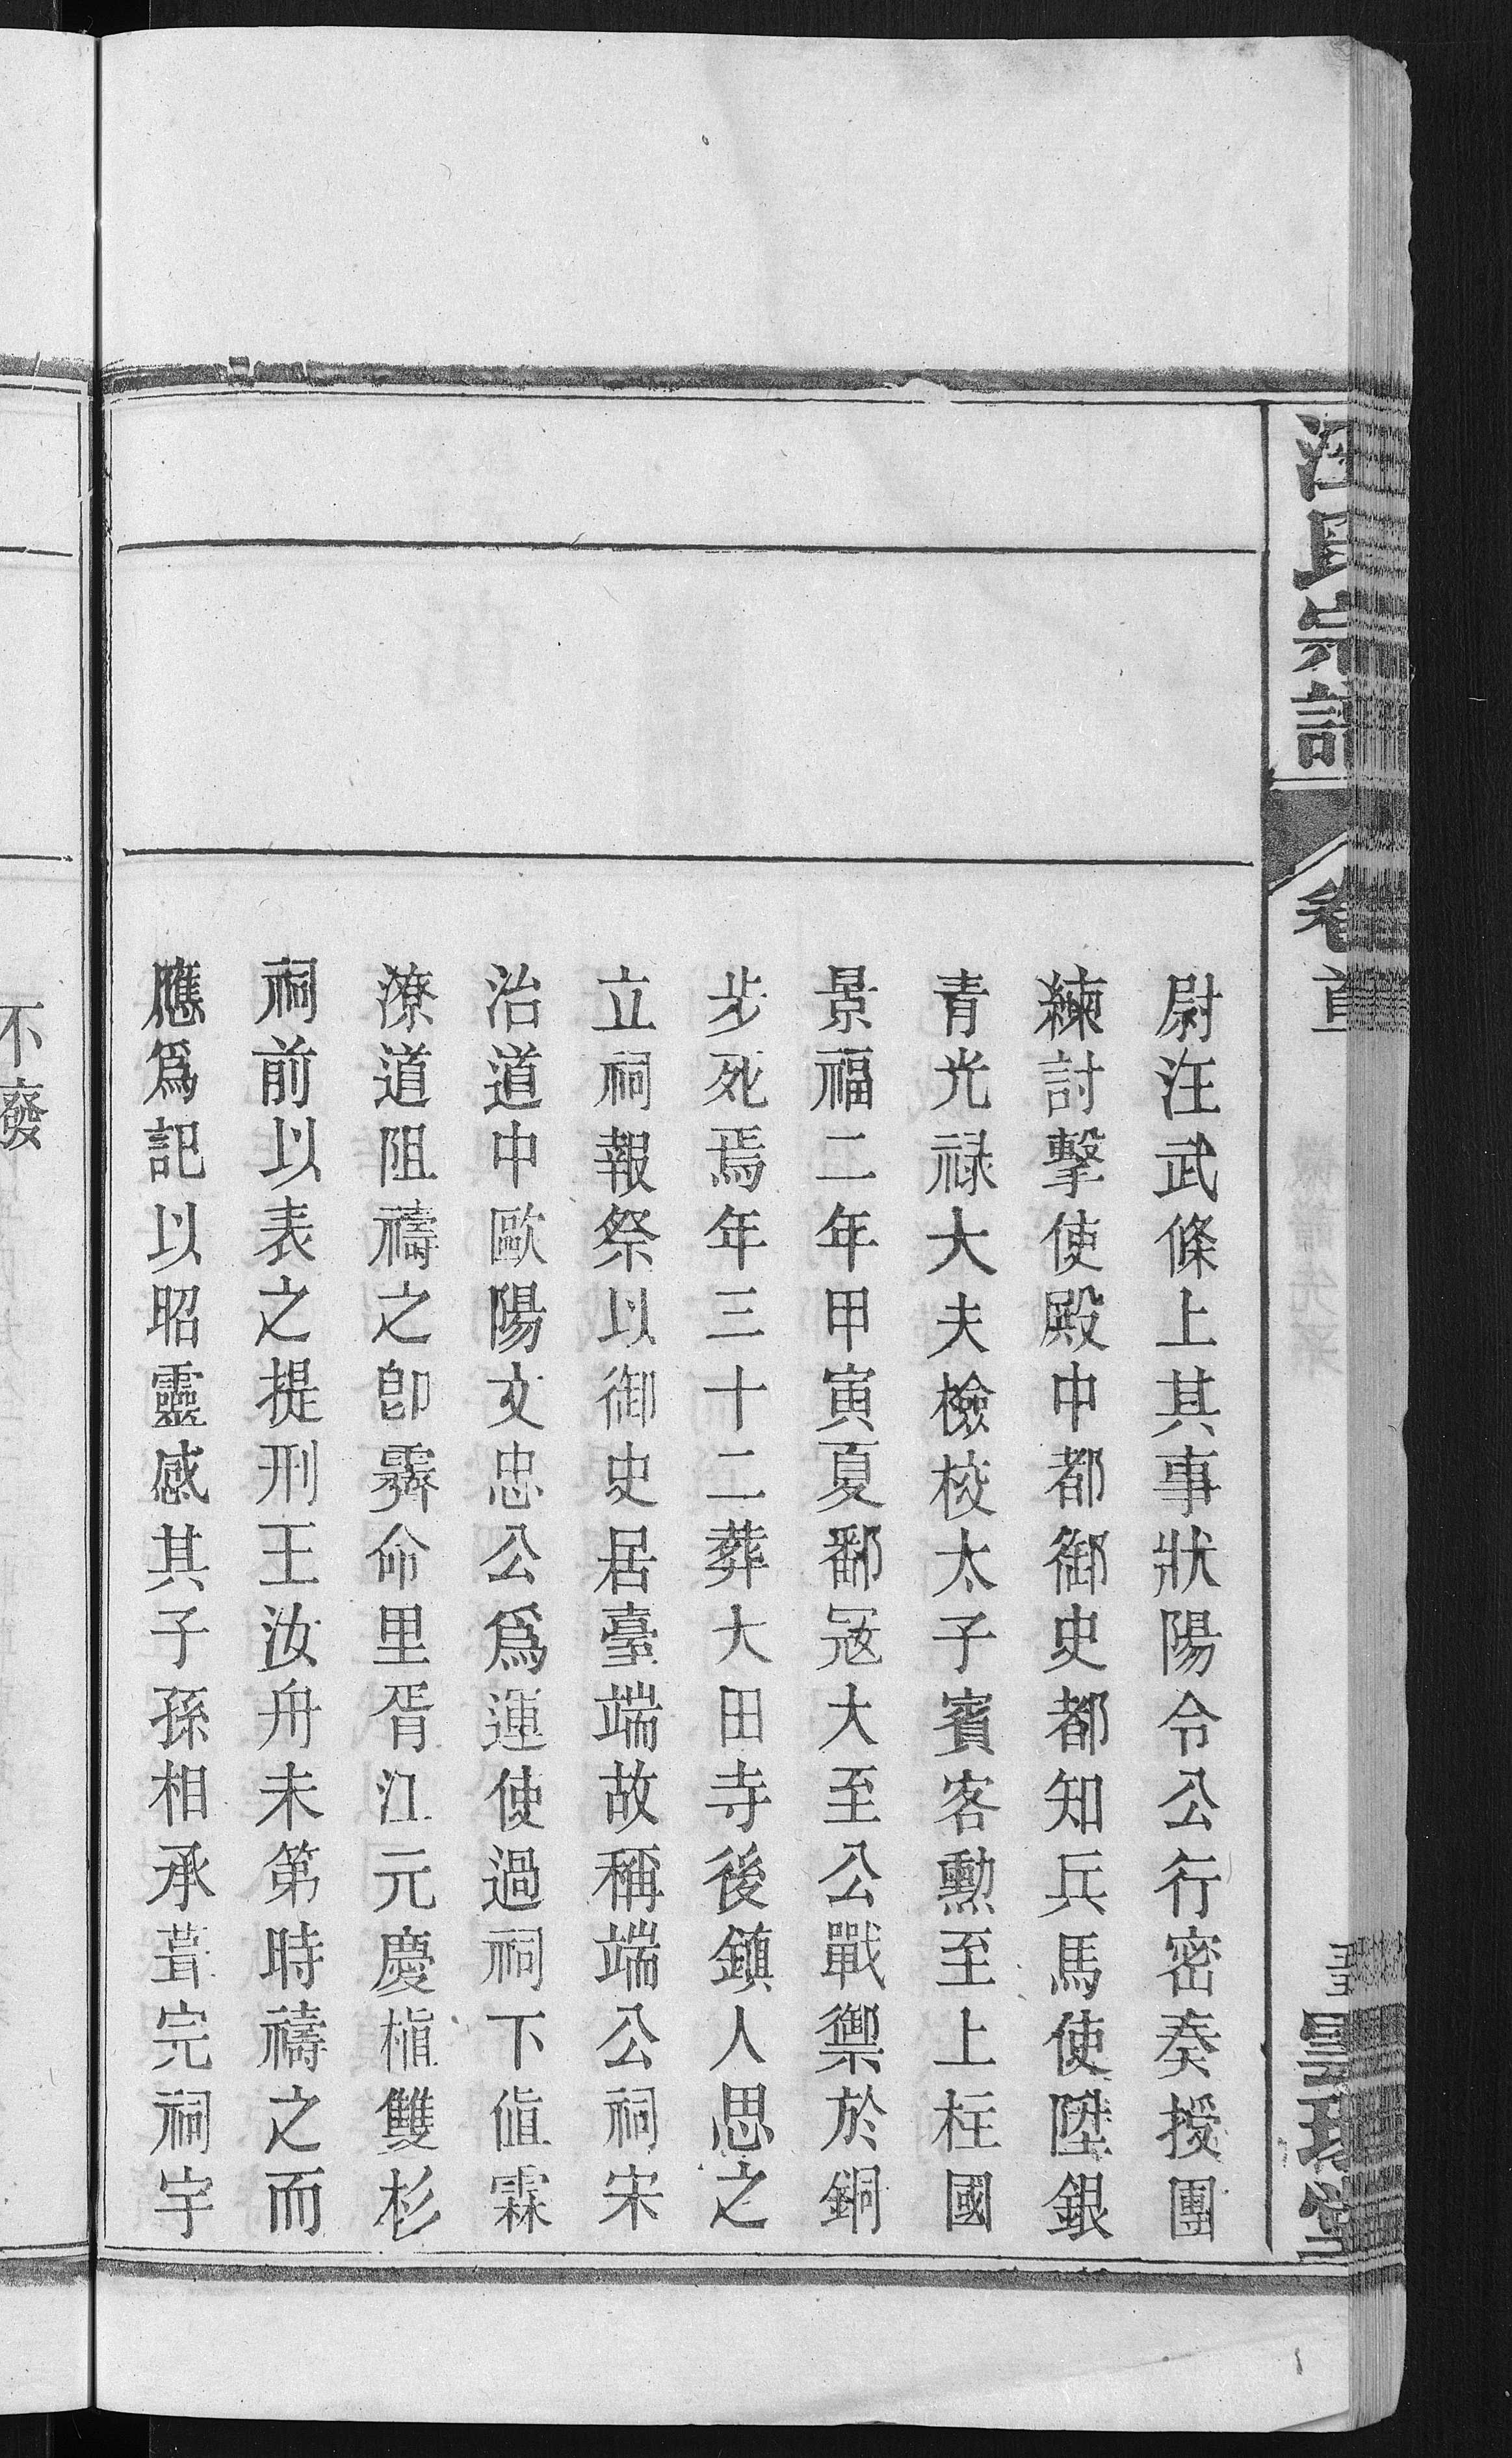 汪氏宗譜
卷首
尉汪武條上其事狀陽令公行密奏授團
練討擊使殿中都御史都知兵馬使陞銀
青光祿大夫檢校太子賓客勳至上柱國
景福二年甲寅夏鄱冦大至公戰禦於銅
步死焉年三十二葬大田寺後鎮人思之
立祠報祭以御史居臺端故稱端公祠宋
治道中歐陽文忠公爲運使過祠下値霖
潦道阻禱之卽霽命里胥江元慶植雙杉
祠前以表之提刑王汝舟未第時禱之而
應爲記以昭靈感其子孫相承葺完祠宇
不廢